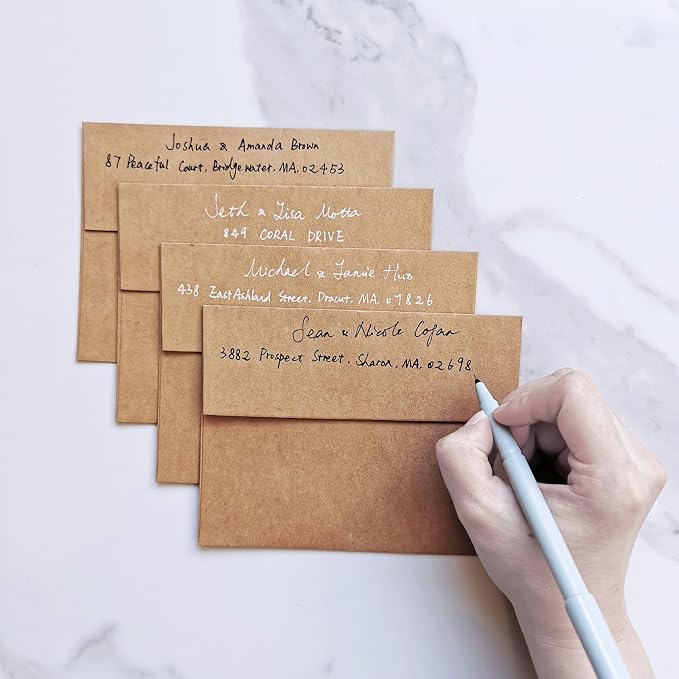 Joshua & Amanda Brown
87 Peaceful Court, Bridgewater, MA, 02453
Seth & Lisa Motta
849 CORAL DRIVE
Michael & Janie Thio
438 East Ashland Street, Dracut, MA, 01826
Sean & Nicole Cofan
3882 Prospect Street, Sharon, MA, 02698